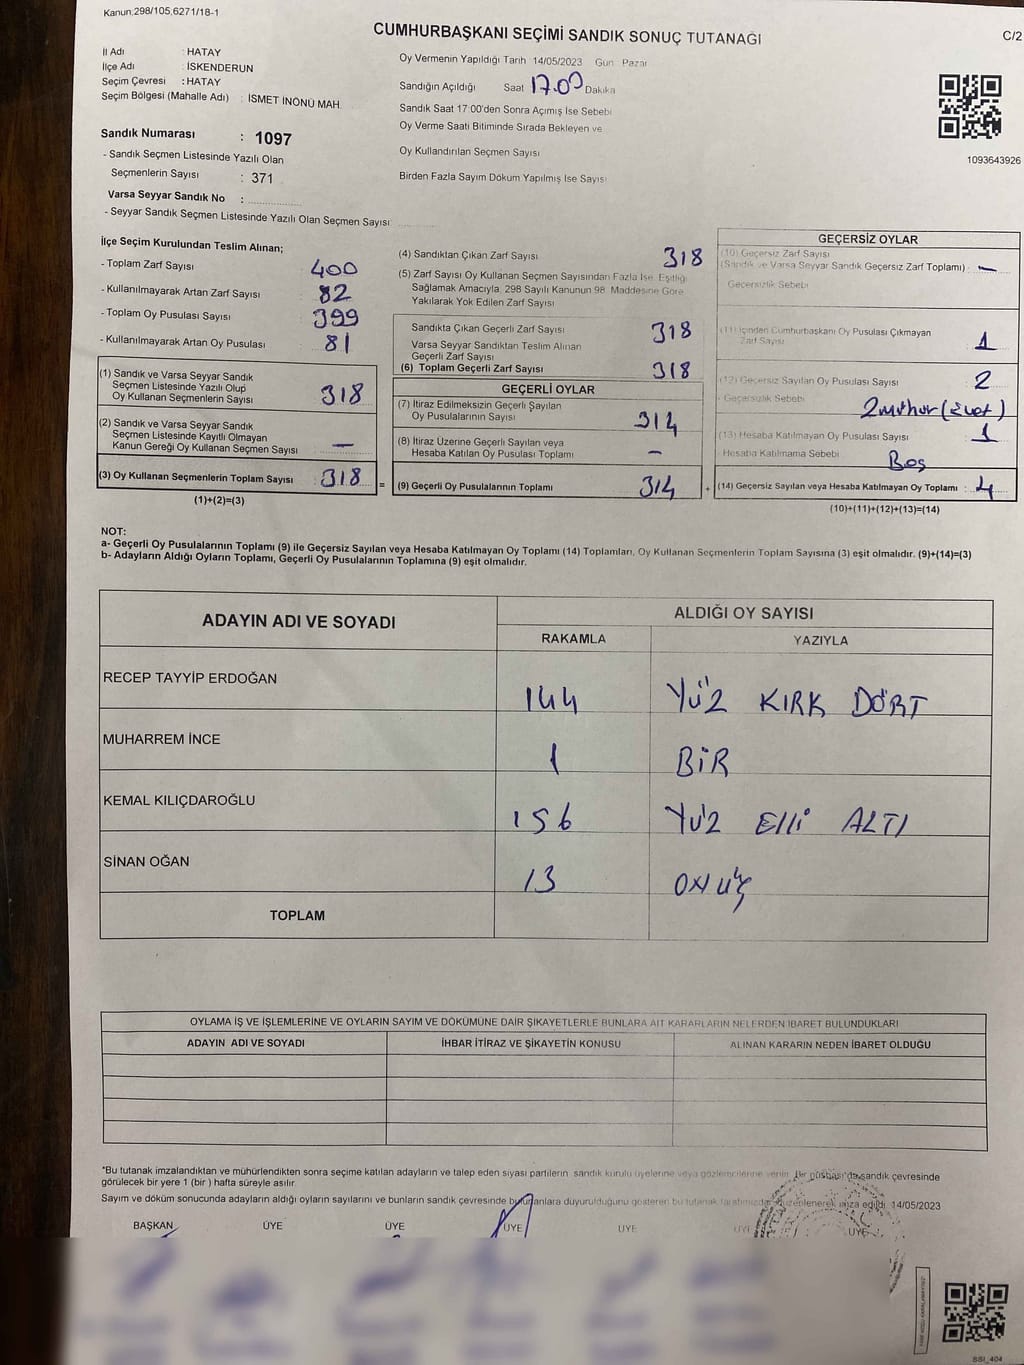 Kanun,298/105,6271/18-1
CUMHURBAŞKANI SEÇİMİ SANDIK SONUÇ TUTANAĞI
C/2
İl Adı : HATAY
İlçe Adı : İSKENDERUN
Seçim Çevresi : HATAY
Seçim Bölgesi (Mahalle Adı) : İSMET İNÖNÜ MAH.
Oy Vermenin Yapıldığı Tarih 14/05/2023 Gün Pazar
Sandığın Açıldığı Saat 17.00 Dakika
Sandık Saat 17:00'den Sonra Açımış İse Sebebi
Oy Verme Saati Bitiminde Sırada Bekleyen ve
Oy Kullandırılan Seçmen Sayısı
Birden Fazla Sayım Döküm Yapılmış İse Sayısı
1093643926
Sandık Numarası : 1097
- Sandık Seçmen Listesinde Yazılı Olan
Seçmenlerin Sayısı : 371
Varsa Seyyar Sandık No :
- Seyyar Sandık Seçmen Listesinde Yazılı Olan Seçmen Sayısı
İlçe Seçim Kurulundan Teslim Alınan;
- Toplam Zarf Sayısı : 400
- Kullanılmayarak Artan Zarf Sayısı : 82
- Toplam Oy Pusulası Sayısı : 399
- Kullanılmayarak Artan Oy Pusulası : 81
(1) Sandık ve Varsa Seyyar Sandık
Seçmen Listesinde Yazılı Olup
Oy Kullanan Seçmenlerin Sayısı : 318
(2) Sandık ve Varsa Seyyar Sandık
Seçmen Listesinde Kayıtlı Olmayan
Kanun Gereği Oy Kullanan Seçmen Sayısı : —
(3) Oy Kullanan Seçmenlerin Toplam Sayısı : 318 =
(1)+(2)=(3)
(4) Sandıktan Çıkan Zarf Sayısı 318
(5) Zarf Sayısı Oy Kullanan Seçmen Sayısından Fazla İse, Eşitliği
Sağlamak Amacıyla, 298 Sayılı Kanunun 98. Maddesine Göre
Yakılarak Yok Edilen Zarf Sayısı
Sandıkta Çıkan Geçerli Zarf Sayısı 318
Varsa Seyyar Sandıktan Teslim Alınan
Geçerli Zarf Sayısı
(6) Toplam Geçerli Zarf Sayısı 318
GEÇERLİ OYLAR
(7) İtiraz Edilmeksizin Geçerli Sayılan
Oy Pusulalarının Sayısı 314
(8) İtiraz Üzerine Geçerli Sayılan veya
Hesaba Katılan Oy Pusulası Toplamı —
(9) Geçerli Oy Pusulalarının Toplamı 314 +
GEÇERSİZ OYLAR
(10) Geçersiz Zarf Sayısı
(Sandık ve Varsa Seyyar Sandık Geçersiz Zarf Toplamı) : —
Geçersizlik Sebebi
(11) İçinden Cumhurbaşkanı Oy Pusulası Çıkmayan
Zarf Sayısı 1
(12) Geçersiz Sayılan Oy Pusulası Sayısı 2
- Geçersizlik Sebebi 2 mühür (Evet)
(13) Hesaba Katılmayan Oy Pusulası Sayısı 1
Hesaba Katılmama Sebebi Boş
(14) Geçersiz Sayılan veya Hesaba Katılmayan Oy Toplamı : 4
(10)+(11)+(12)+(13)=(14)
NOT:
a- Geçerli Oy Pusulalarının Toplamı (9) ile Geçersiz Sayılan veya Hesaba Katılmayan Oy Toplamı (14) Toplamları, Oy Kullanan Seçmenlerin Toplam Sayısına (3) eşit olmalıdır. (9)+(14)=(3)
b- Adayların Aldığı Oyların Toplamı, Geçerli Oy Pusulalarının Toplamına (9) eşit olmalıdır.
ADAYIN ADI VE SOYADI
ALDIĞI OY SAYISI
RAKAMLA YAZIYLA
RECEP TAYYİP ERDOĞAN 144 YÜZ KIRK DÖRT
MUHARREM İNCE 1 BİR
KEMAL KILIÇDAROĞLU 156 YÜZ Elli ALTI
SİNAN OĞAN 13 ON ÜÇ
TOPLAM
OYLAMA İŞ VE İŞLEMLERİNE VE OYLARIN SAYIM VE DÖKÜMÜNE DAİR ŞİKAYETLERLE BUNLARA AİT KARARLARIN NELERDEN İBARET BULUNDUKLARI
ADAYIN ADI VE SOYADI İHBAR İTİRAZ VE ŞİKAYETİN KONUSU ALINAN KARARIN NEDEN İBARET OLDUĞU
*Bu tutanak imzalandıktan ve mühürlendikten sonra seçime katılan adayların ve talep eden siyasi partilerin sandık kurulu üyelerine veya gözlemcilerine verilir. Bir nüshası da sandık çevresinde
görülecek bir yere 1 (bir) hafta süreyle asılır.
Sayım ve döküm sonucunda adayların aldığı oyların sayılarını ve bunların sandık çevresinde bulunanlara duyurulduğunu gösteren bu tutanak tarafımızdan düzenlenerek imza edildi. 14/05/2023
BAŞKAN ÜYE ÜYE ÜYE ÜYE ÜYE ÜYE
SSI_404